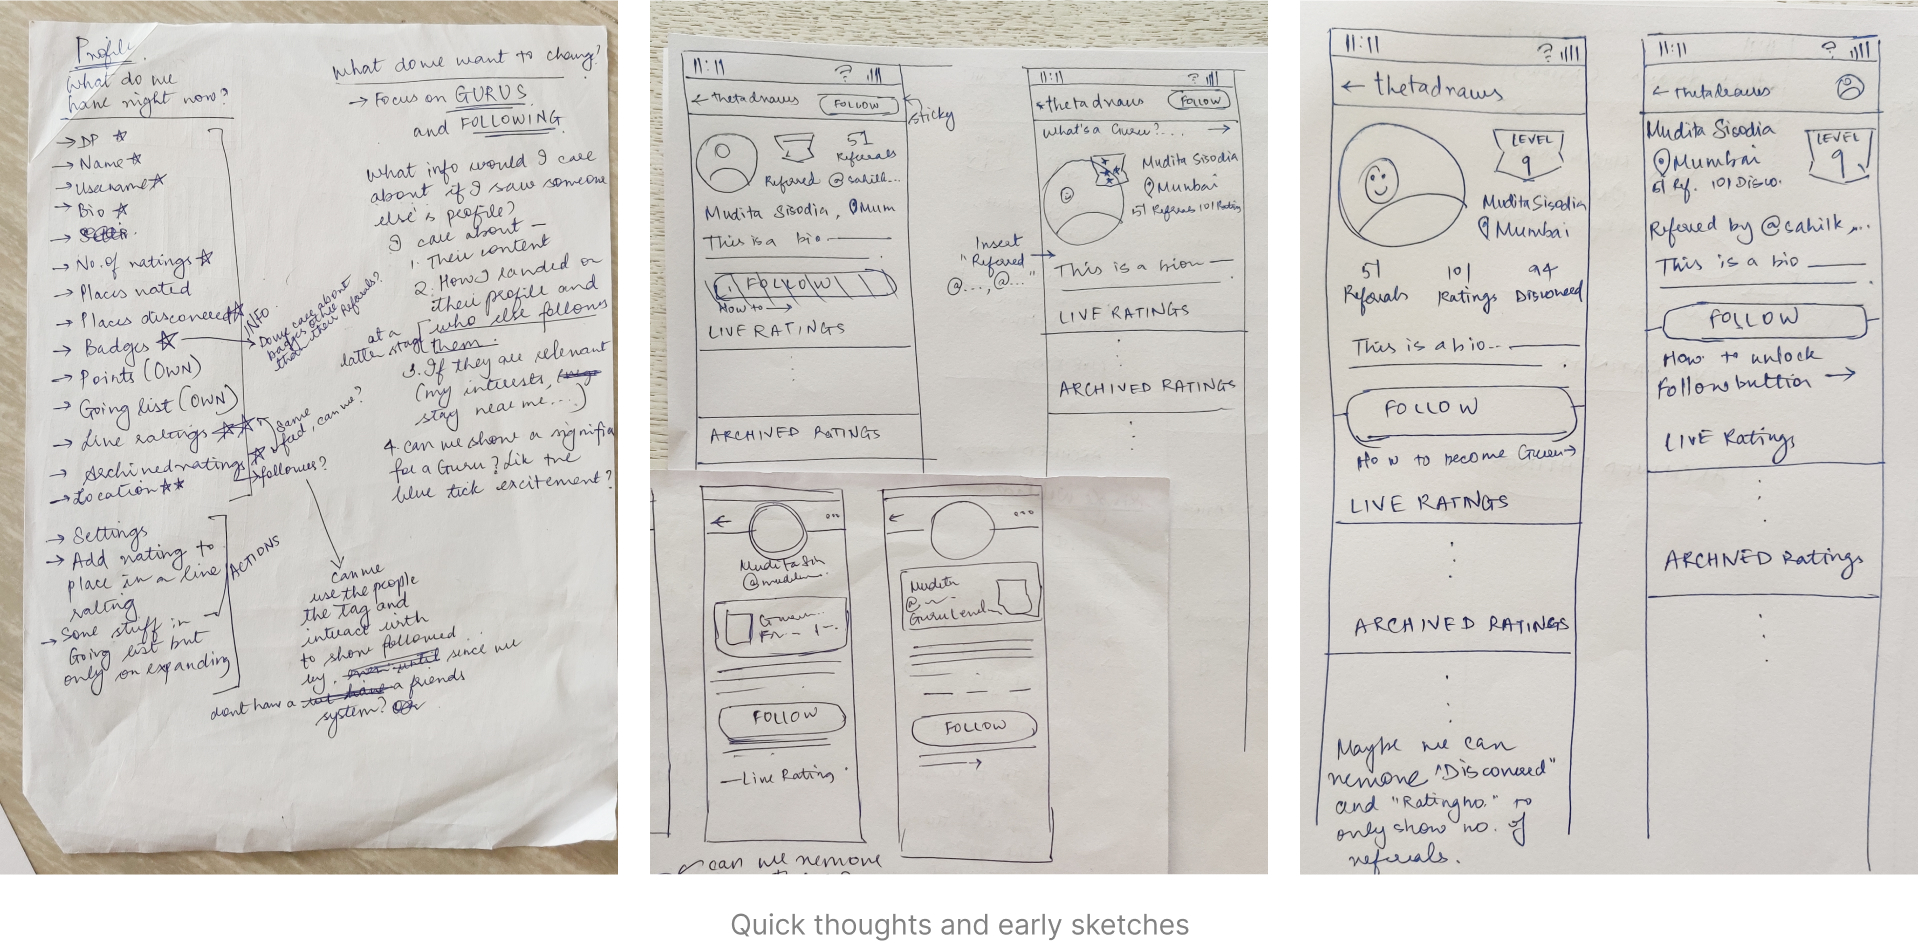 Profile.
What do we
have right now?
→ DP ☆
→ Name ☆
→ Username ☆
→ Bio ☆
→ No. of ratings ☆
→ Places rated
→ Places discovered ☆
→ Badges ☆
→ Points (OWN)
→ Going list (OWN)
→ Live ratings ☆☆
→ Archived ratings ☆
→ Location ☆☆
INFO
Do we care about
badges other
than their Referrals?
Same
fact, can we?
followers?
→ Settings
→ Add rating to
place in a live
rating
→ Some stuff in
Going list but
only on expanding
ACTIONS
What do we want to change?
→ Focus on GURUS
and FOLLOWING
What info would I care
about if I saw someone
else's profile?
I care about —
1. Their content
2. How I landed on
their profile and
who else follows
them.
at a
latter stage
3. If they are relevant
(my interests,
stay near me...)
4. Can we show a signifia
for a Guru? Like the
blue tick excitement?
can we
use the people
the tag and
interact with
to show followed
by. since we
dont have a friends
system?
11:11 ?
← thetadraws FOLLOW
sticky
51
Referrals
Referred @sahilk...
Mudita Sisodia, Mum
This is a bio
FOLLOW
How to →
LIVE RATINGS
ARCHIVED RATINGS
11:11 ?
thetadraws FOLLOW
What's a Guru?... →
Mudita Sisodia
Mumbai
51 Referrals 101 Rating
Insert
"Referred
@..., @..."
This is a bion
LIVE RATINGS
ARCHIVED RATINGS
←
FOLLOW
—Live Rating
←
Mudita
@
Guru Level
FOLLOW
can we remove
11:11 ?
← thetadraws
LEVEL
9
Mudita Sisodia
Mumbai
51 101 94
Referrals Ratings Discovered
This is a bio..
FOLLOW
How to become Guru →
LIVE RATINGS
ARCHIVED RATINGS
Maybe we can
remove "Discovered"
and "Rating no." to
only show no. of
referrals.
11:11 ?
← thetadraws
Mudita Sisodia
Mumbai
51 Ref. 101 Disco.
LEVEL
9
Refered by @sahilk,...
This is a bio
FOLLOW
How to unlock
Follow button →
LIVE Ratings
ARCHIVED Ratings
Quick thoughts and early sketches